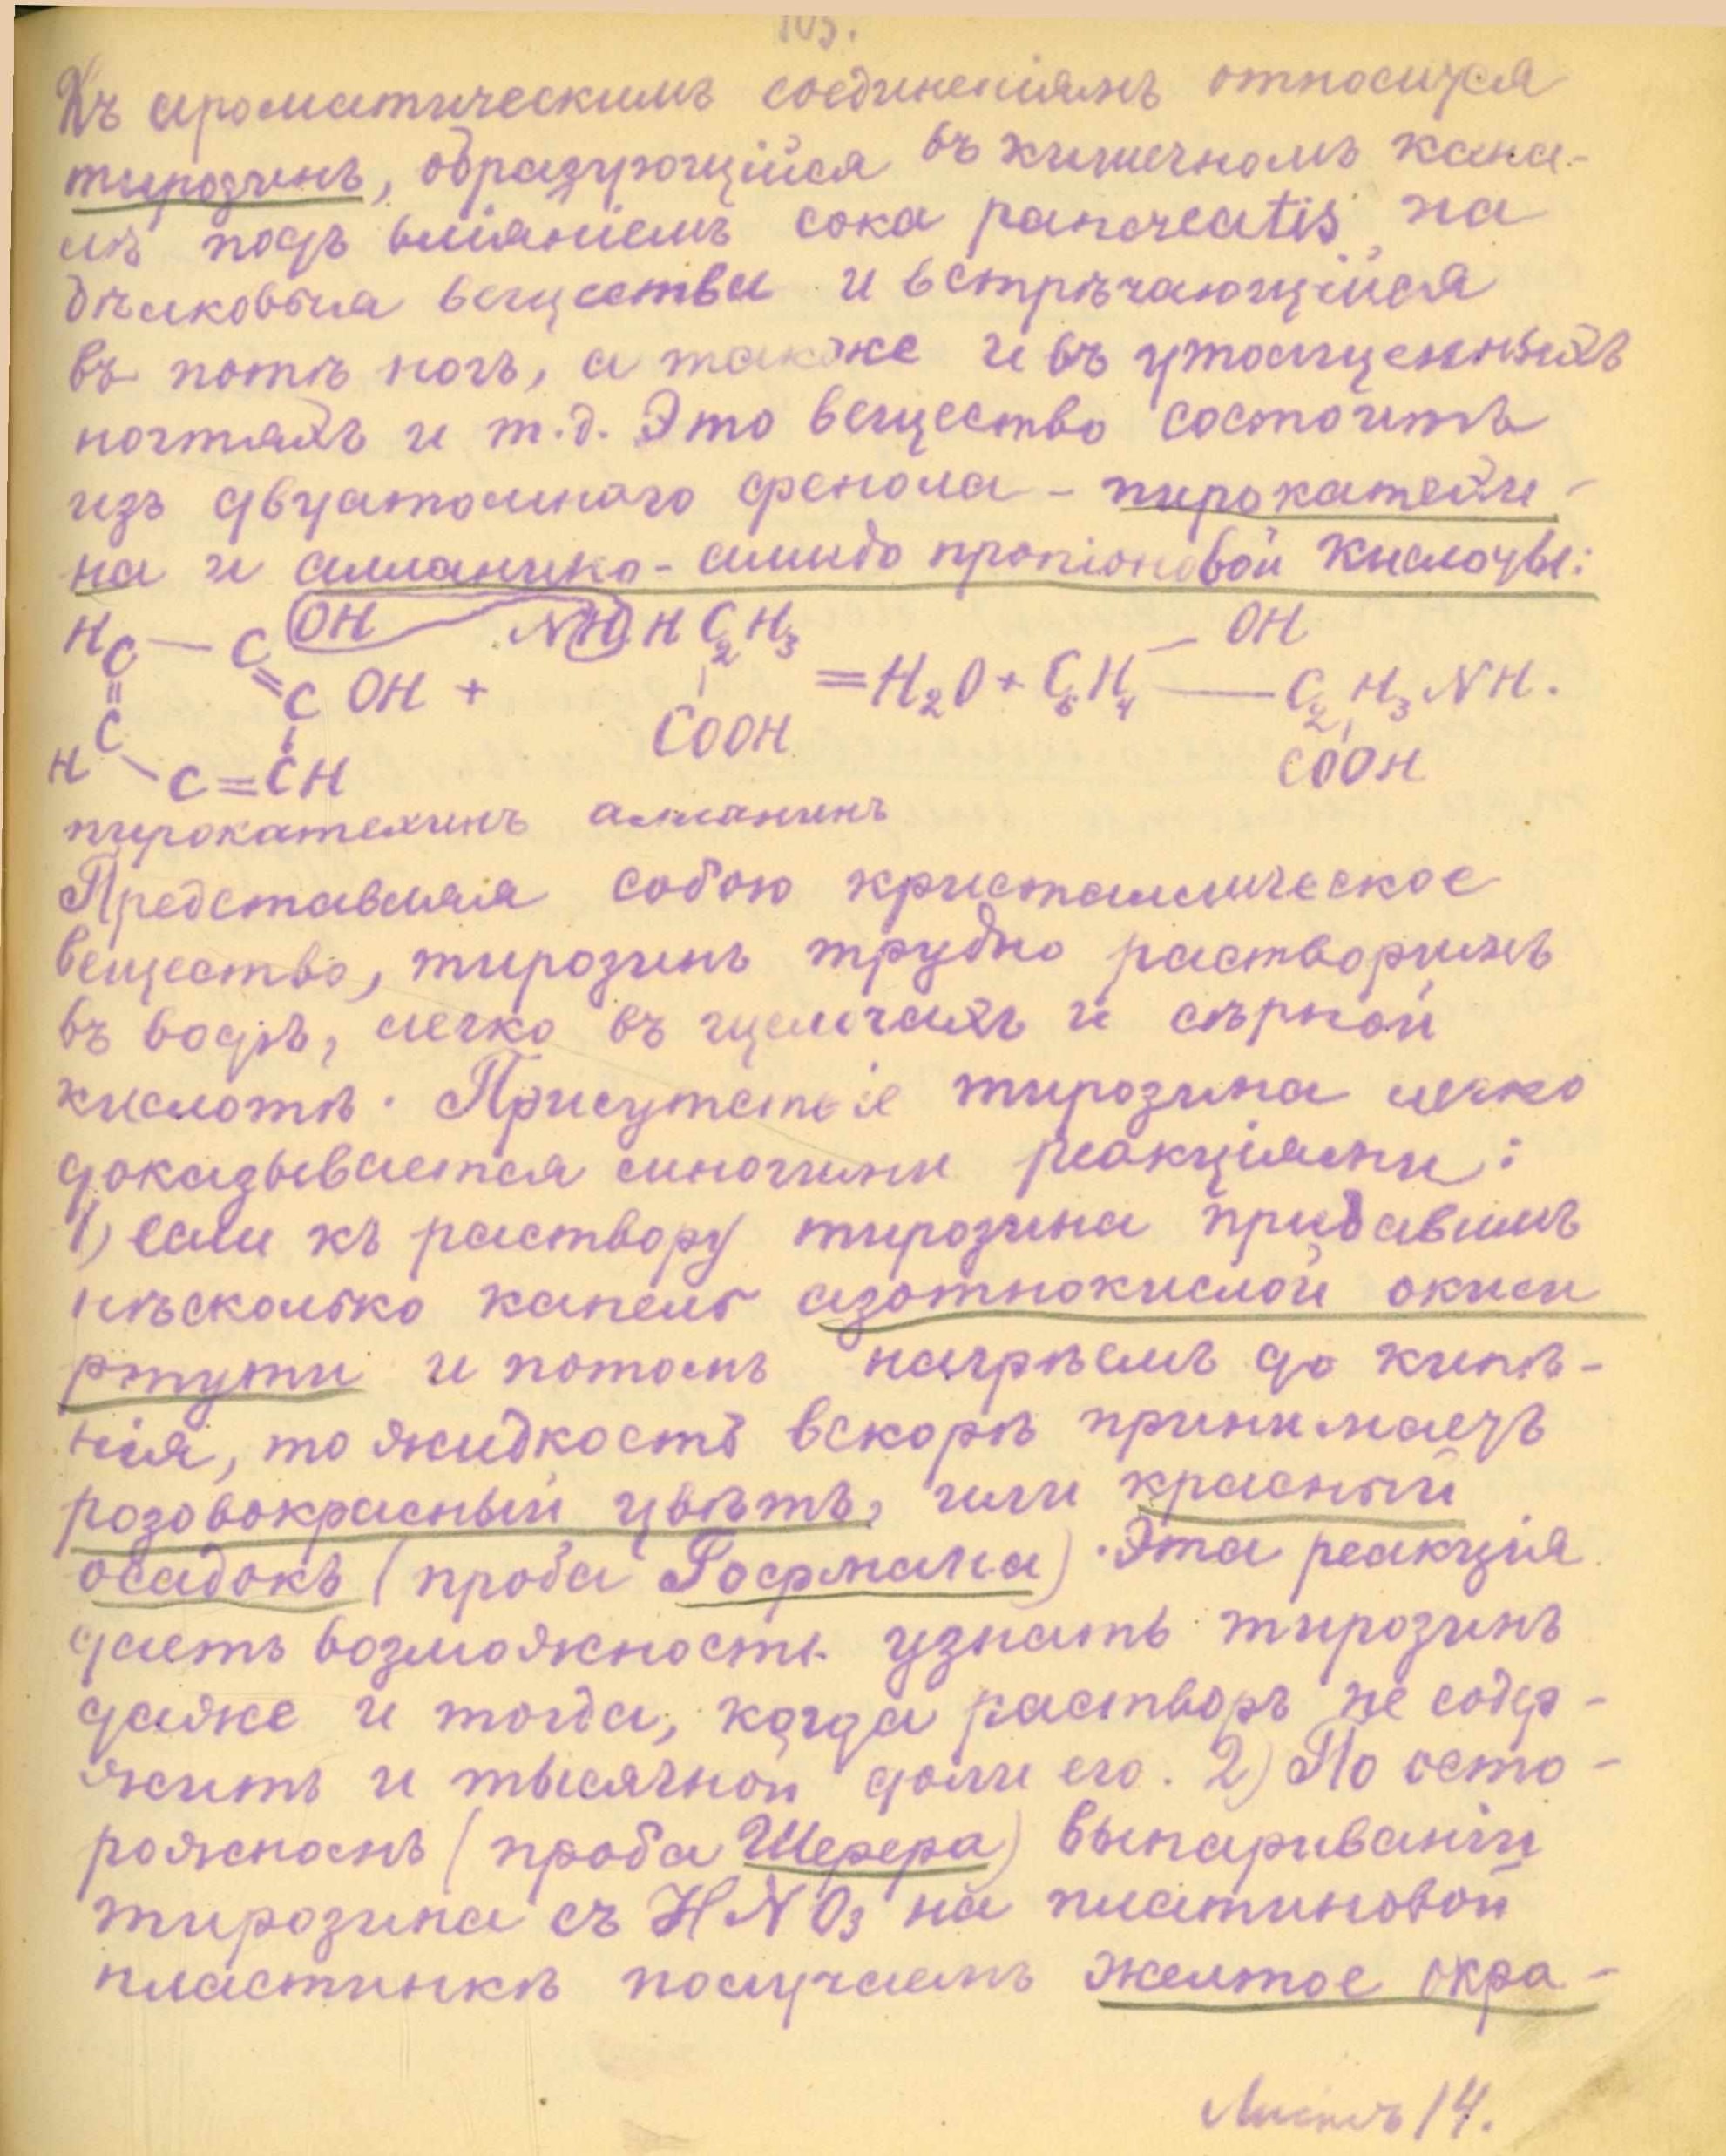 105.
Къ ароматическимъ соединеніямъ относится
тирозинъ, образующійся въ кишечномъ кана-
лѣ подъ вліяніемъ сока pancreatis на
бѣлковыя вещества и встрѣчающійся
въ потѣ ногъ, а также и въ утолщенныхъ
ногтяхъ и т.д. Это вещество состоитъ
изъ двуатомнаго фенола - пирокатехи-
на и алланино-амидо пропіоновой кислоты:
HC — C OH NHH C2H3 OH
C C OH + = H2O + C6H4 — C2H3NH.
H C = CH COOH COOH
пирокатехинъ алланинъ
Представляя собою кристаллическое
вещество, тирозинъ трудно растворимъ
въ водѣ, легко въ щелочахъ и сѣрной
кислотѣ. Присутствіе тирозина легко
доказывается многими реакціями:
1) если къ раствору тирозина прибавимъ
нѣсколько капель азотнокислой окиси
ртути и потомъ нагрѣемъ до кипѣ-
нія, то жидкость вскорѣ принимаетъ
розовокрасный цвѣтъ, или красный
осадокъ (проба Гофмана). Эта реакція
даетъ возможность узнать тирозинъ
даже и тогда, когда растворъ не содер-
житъ и тысячной доли его. 2) По осто-
рожномъ (проба Шерера) выпариваніи
тирозина съ HNO3 на платиновой
пластинкѣ получаемъ желтое окра-
Листъ 14.